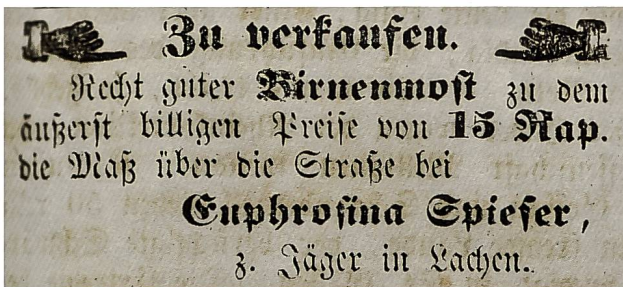 Zu verkaufen.
Recht guter Birnenmost zu dem
äußerst billigen Preise von 15 Rap.
die Maß über die Straße bei
Euphrosina Spieser,
z. Jäger in Lachen.